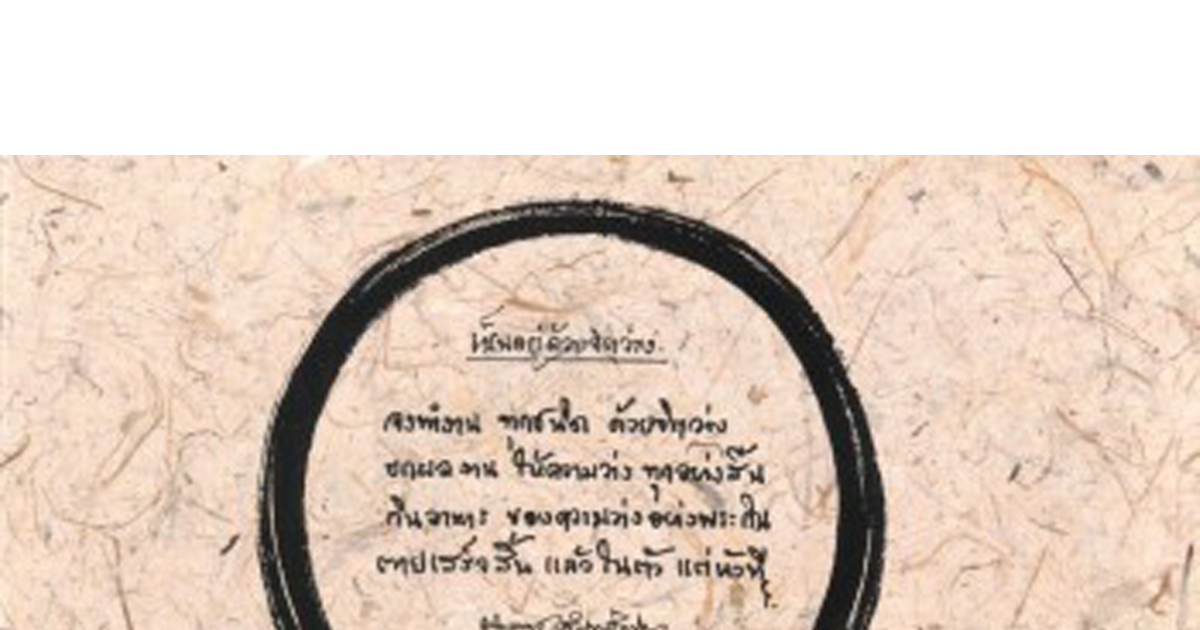 เป็นอยู่ด้วยจิตว่าง
จงทำงาน ทุกชนิด ด้วยจิตว่าง
ยกผลงาน ให้ความว่าง ทุกอย่างสิ้น
กินอาหาร ของความว่าง อย่างพระกิน
ตายเสร็จสิ้น แล้วในตัว แต่หัวที